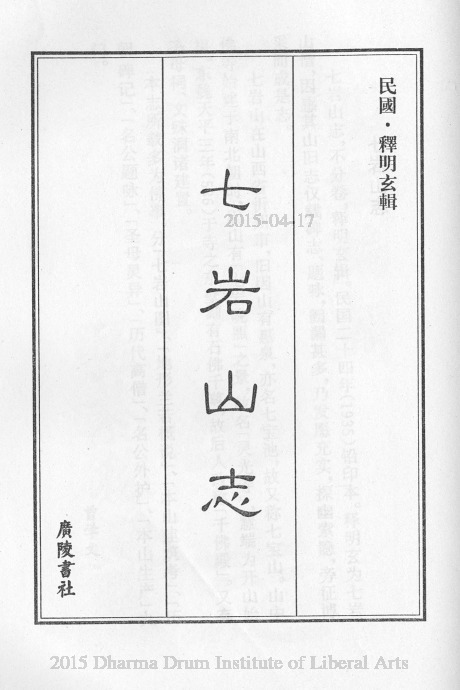 民國·釋明玄輯
七岩山志
廣陵書社
2015-04-17
2015 Dharma Drum Institute of Liberal Arts